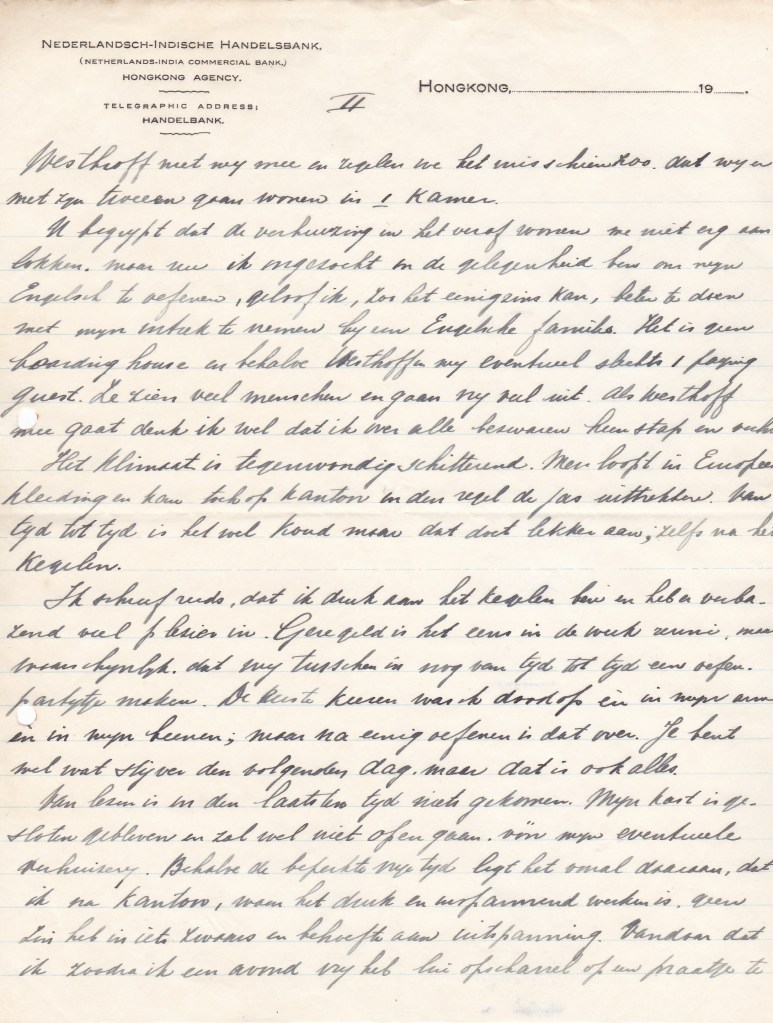 NEDERLANDSCH-INDISCHE HANDELSBANK,
(NETHERLANDS-INDIA COMMERCIAL BANK,)
HONGKONG AGENCY.
TELEGRAPHIC ADDRESS;
HANDELBANK.
HONGKONG, 19 .
II
Westhoff met my mee en regelen we het misschien zoo. dat wy er
met zyn tweeen gaan wonen in 1 Kamer.
U begrypt dat de verhuizing en het veraf wonen me niet erg aan
lokken. maar nu ik ongezocht in de gelegenheid ben om myn
Engelsch te oefenen, geloof ik, zoo het eenigzins kan, beter te doen
met myn intrek te nemen by een Engelsche familie. Het is geen
boarding house en behalve Westhoff en my eventueel slechts 1 paying
guest. Ze zien veel menschen en gaan vry veel uit. Als Westhoff
mee gaat denk ik wel dat ik over alle bezwaren heen stap en
Het klimaat is tegenwoordig schitterend. Men loopt in Europee
kleeding en kan toch op kantoor in den regel de jas uittrekken. Van
tyd tot tyd is het wel koud maar dat doet lekker aan; zelfs na het
Kegelen.
Ik schreef reeds, dat ik druk aan het kegelen ben en heb er verba-
zend veel plesier in. Geregeld is het eens in de week , maar
waarschynlyk. dat wy tusschen in nog van tyd tot tyd een oefen-
partytje maken. De eerste keeren was ik doodop én in myn arm
én in myn beenen; maar na eenig oefenen is dat over. Je bent
wel wat styver den volgenden dag. maar dat is ook alles.
Van lezen is in den laatsten tyd niets gekomen. Myn kast is ge-
sloten gebleven en zal wel niet open gaan. vóór myn eventueele
verhuizing. Behalve de beperkte vrye tyd ligt het vooral daaraan, dat
ik na Kantoor, waar het druk en inspannend werken is. geen
zin heb in iets zwaars en behoefte aan uitspanning. Vandaar dat
ik zoodra ik een avond vry heb opscharrel of een praatje te